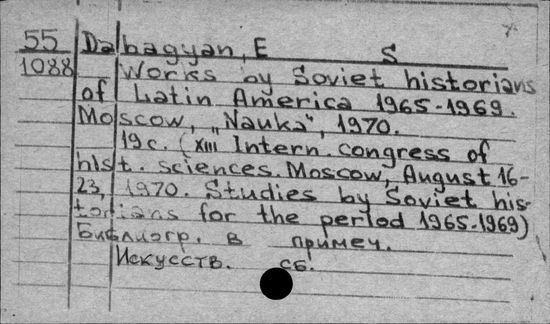 55 Dabagyan, E S
1088 Works by Soviet historians
of Latin America 1965-1969.
Moscow, „Nauka", 1970.
19 c. (XIII Intern. congress of
hist. sciences. Moscow, August 16-
23, 1970. Studies by Soviet his-
torians for the period 1965-1969)
Библиогр. в примеч.
Искусств. сб.